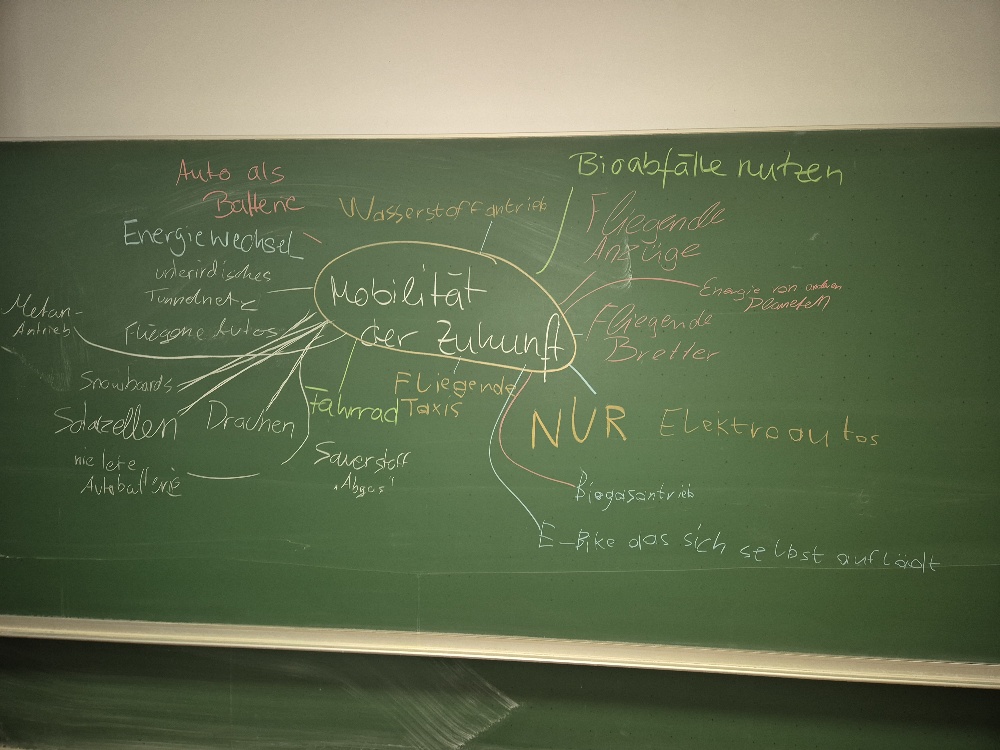 Auto als
Batterie
Wasserstoffantrieb
Bioabfälle nutzen
Energiewechsel
Fliegende
Anzüge
unterirdisches
Tunnelnetz
Mobilität
der Zukunft
Energie von anderen
Planeten
Metan-
Antrieb
Fliegene Autos
Fliegende
Bretter
Snowboards
Solazellen
Drachen
Fahrrad
Fliegende
Taxis
NUR Elektroautos
nie lere
Autobatterie
Sauerstoff
"Abgas"
Biogasantrieb
E-Bike das sich selbst auflädt